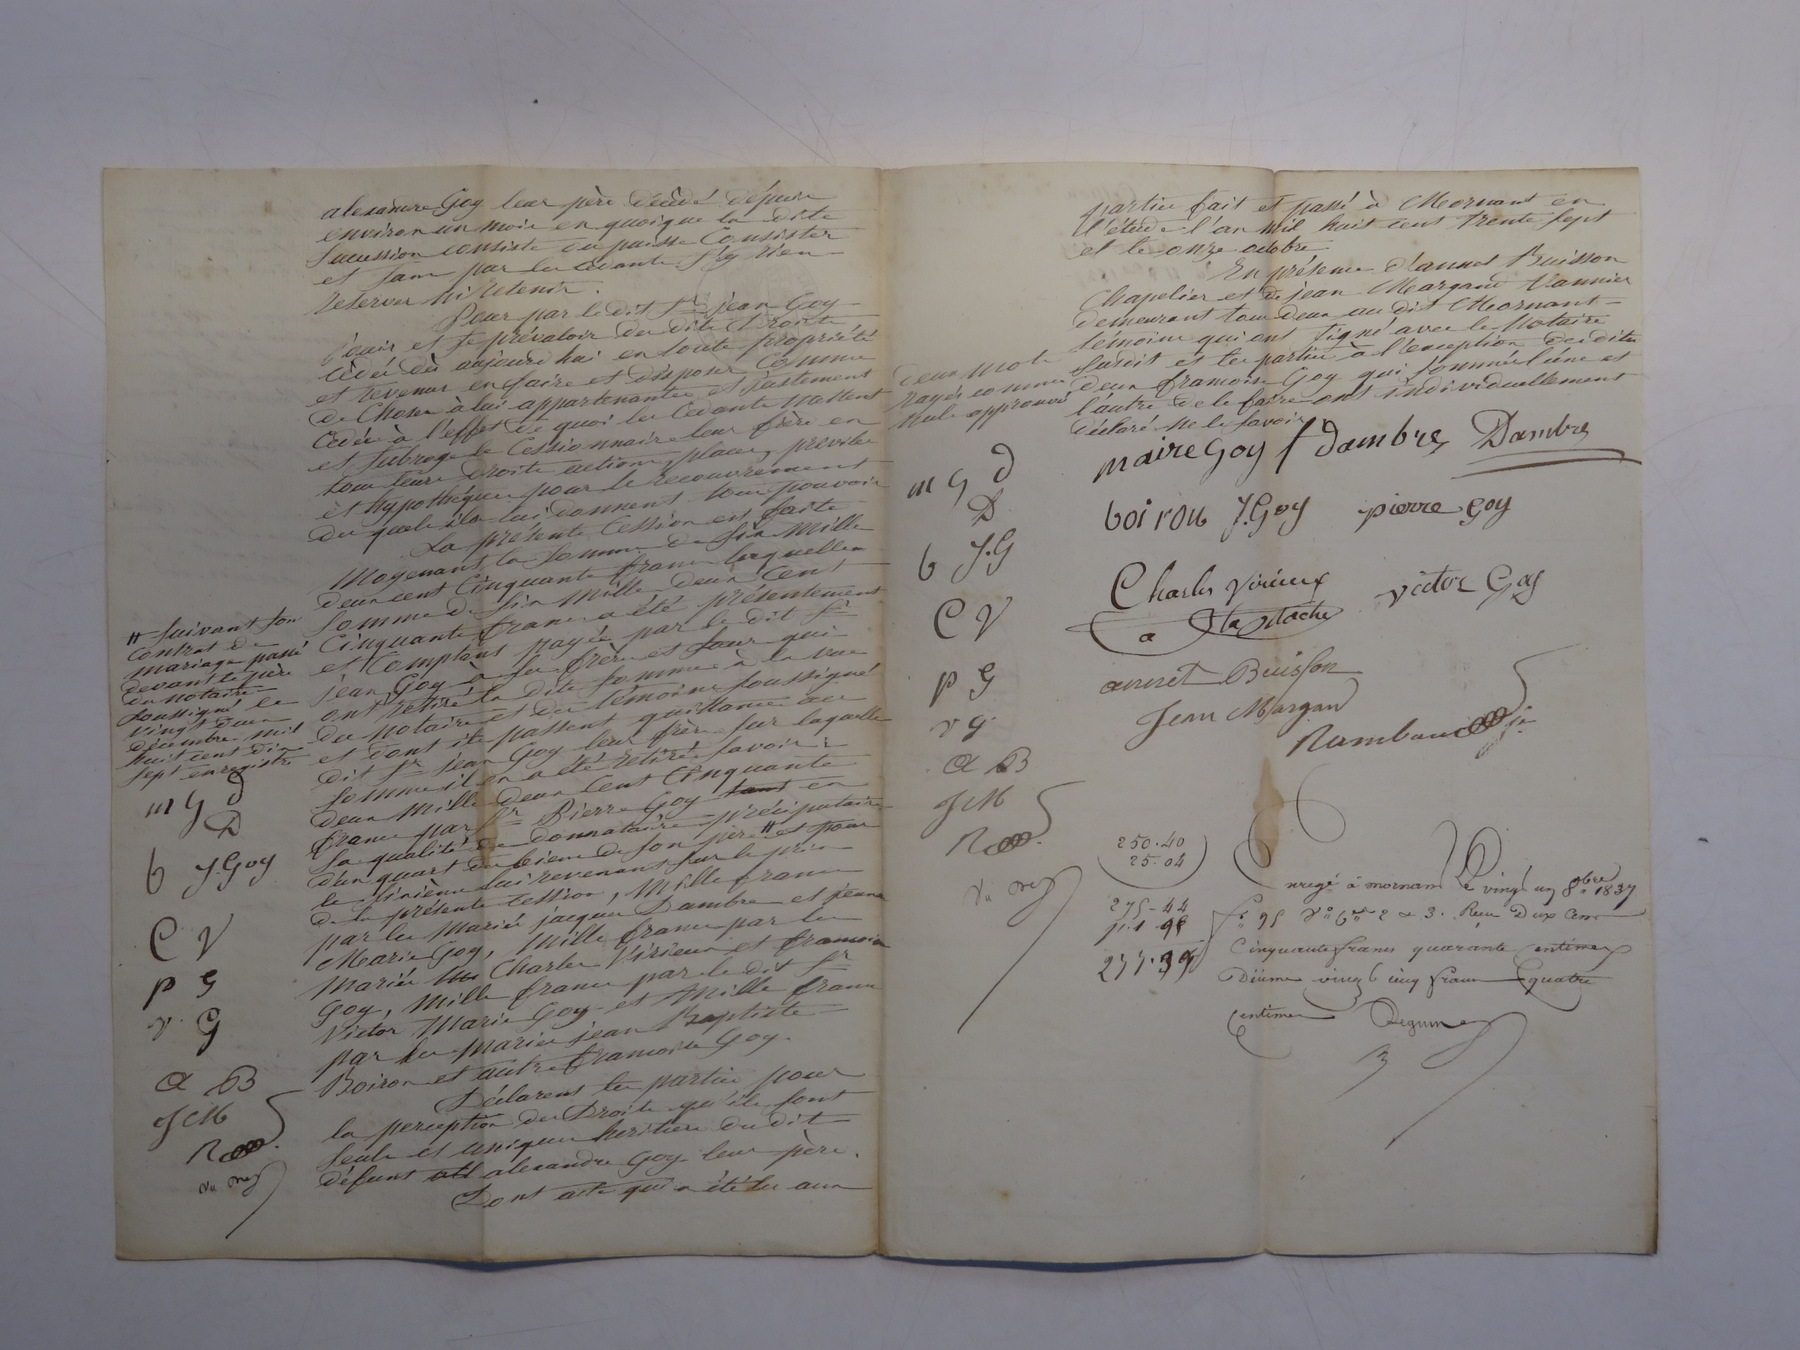 alexandre Goy leur père décédé depuis
environ un mois en quoique la dite
succession consiste ou puisse Consister
et sans par les cédants s'y rien
reserver ni retenir.
Pour par le dit Sr jean Goy
jouir et se prévaloir des dits droits
cédés dès aujourd'hui en toute propriété
et revenus en faire et disposer Comme
de Chose à lui appartenante et justement
Cédée à l'effet de quoi les Cédants mettent
et subroge le Cessionnaire leur frère en
tous leurs droits actions, places, privilèges
et hypothèques pour le recouvrement
du quels ils lui donnent tous pouvoir
La présente Cession est faite
Moyenant la Somme de Six Mille
deux cent Cinquante francs laquelle
Somme de Six Mille deux Cent
Cinquante francs a été présentement
et Comptant payée par le dit Sr
jean Goy à ses frères et sœurs qui
ont retiré la dite Somme à la vue
du Notaire et des témoins soussignés
et dont ils passent quittance au
dit Sr jean Goy leur frère sur laquelle
Somme il en a été retiré savoir :
deux Mille deux Cent Cinquante
francs par Sr Pierre Goy tant en
sa qualité de donnataire préciputaire
d'un quart des biens de son père # et pour
le sixième lui revenant sur le prix
de la présente Cession, Mille francs
par les mariés jacques Dambre et jeanne
Marie Goy, Mille francs par les
mariés Charles Virieux et francoise
Goy, Mille francs par le dit Sr
Victor Marie Goy et Mille francs
par les mariés jean Baptiste
Boiron et autre francoise Goy.
Déclarent les parties pour
la perception des Droits qu'ils sont
seuls et uniques heritiers du dit
défunt alexandre Goy leur père.
Dont acte qui a été lu aux
# Suivant son
Contrat de
mariage passé
devant le père
du notaire
soussigné le
vingt deux
décembre mil
huit cent dix
sept enregistré
m g d
D
b J. Goy
C V
p G
v. G
a B
J M
R
parties fait et passé à Mornant en
l'étude l'an mil huit cent trente sept
et le onze octobre
En présence d'annet Buisson
Chapelier et de jean Margand Vannier
demeurant tous deux au dit Mornant
témoins qui ont signé avec le Notaire
susdit et les parties à l'exception des dites
deux francoise Goy qui sommée l'une et
l'autre de le faire ont individuellement
déclaré ne le savoir
deux mots
rayés comme
nuls approuvé
maire Goy f dambre Dambre
boirou J. Goy pierre goy
Charles virieux victor Goy
annet Buisson
Jean Margan
Rambaud
m g d
D
b J. G
C V
p G
v g
a B
J M
R
250.40
25.04
275-44
277.39
Enregé à mornant le vingt un 8bre 1837
fo 95 Vo Cses 2 et 3. Reçu deux Cent
Cinquante francs quarante Centimes
Dixieme vingt cinq francs quatre
Centimes